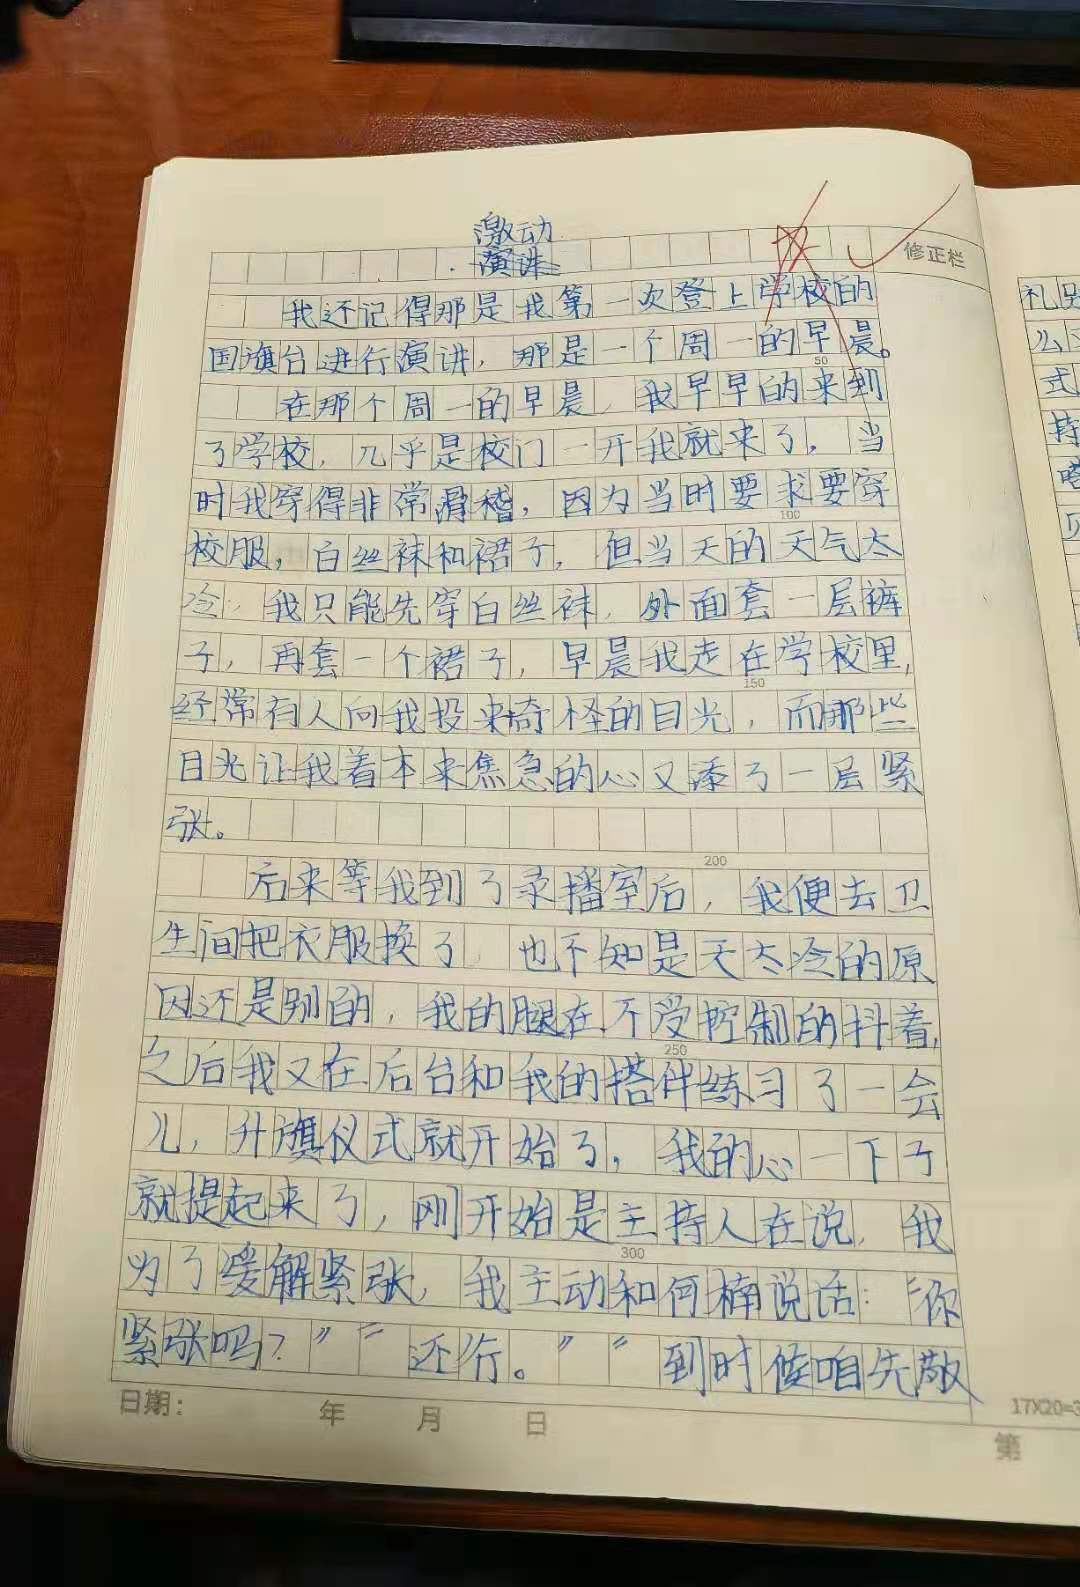 激动
演讲
修正栏
我还记得那是我第一次登上学校的
国旗台进行演讲，那是一个周一的早晨。
50
在那个周一的早晨，我早早的来到
了学校，几乎是校门一开我就来了，当
时我穿得非常滑稽，因为当时要求要穿
100
校服，白丝袜和裙子，但当天的天气太
冷，我只能先穿白丝袜，外面套一层裤
子，再套一个裙子，早晨我走在学校里，
150
经常有人向我投来奇怪的目光，而那些
目光让我着本来焦急的心又添了一层紧
张。
200
后来等我到了录播室后，我便去卫
生间把衣服换了，也不知是天太冷的原
因还是别的，我的腿在不受控制的抖着，
250
之后我又在后台和我的搭伴练习了一会
儿，升旗仪式就开始了，我的心一下子
就提起来了，刚开始是主持人在说，我
300
为了缓解紧张，我主动和何楠说话：“你
紧张吗？”“还行。”“到时候咱先敬
日期： 年 月 日
17X20=3
第
礼
么
式
持